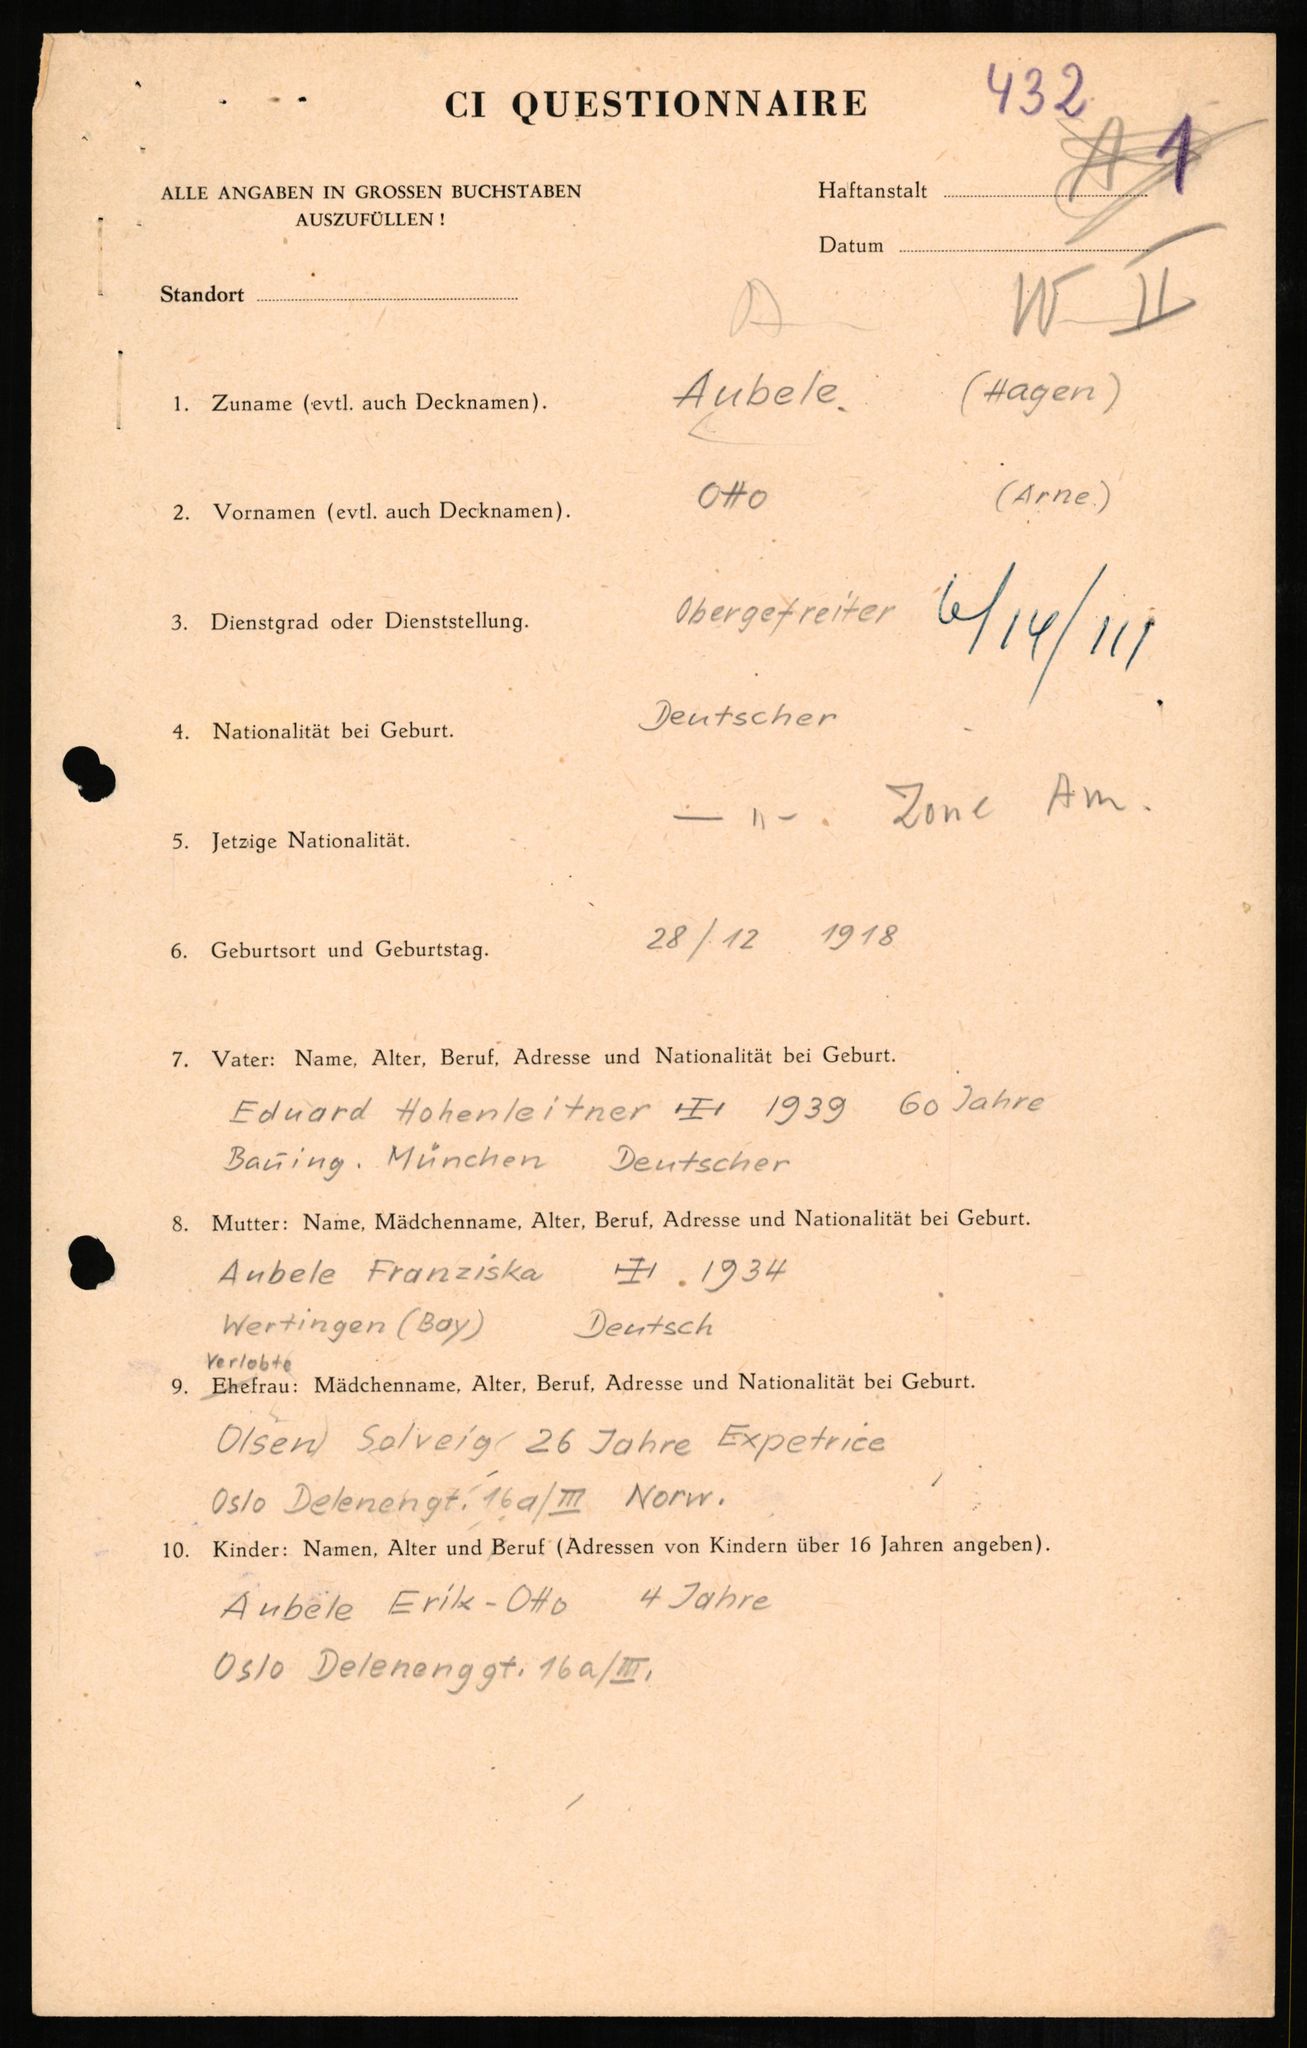 CI QUESTIONNAIRE
432
A 1
ALLE ANGABEN IN GROSSEN BUCHSTABEN
AUSZUFÜLLEN !
Haftanstalt
Datum
Standort
W II
1. Zuname (evtl. auch Decknamen). Aubele. (Hagen)
2. Vornamen (evtl. auch Decknamen). Otto (Arne.)
3. Dienstgrad oder Dienststellung. Obergefreiter 6/14/111
4. Nationalität bei Geburt. Deutscher
5. Jetzige Nationalität. — " - . Zone Am.
6. Geburtsort und Geburtstag. 28/12 1918
7. Vater: Name, Alter, Beruf, Adresse und Nationalität bei Geburt.
Eduard Hohenleitner 1939 60 Jahre
Bauing. München Deutscher
8. Mutter: Name, Mädchenname, Alter, Beruf, Adresse und Nationalität bei Geburt.
Aubele Franziska 1934
Wertingen (Bay) Deutsch
Verlobte
9. Ehefrau: Mädchenname, Alter, Beruf, Adresse und Nationalität bei Geburt.
Olsen Solveig 26 Jahre Expetrice
Oslo Delenengt. 16a/III Norw.
10. Kinder: Namen, Alter und Beruf (Adressen von Kindern über 16 Jahren angeben).
Aubele Erik-Otto 4 Jahre
Oslo Delenenggt. 16a/III.